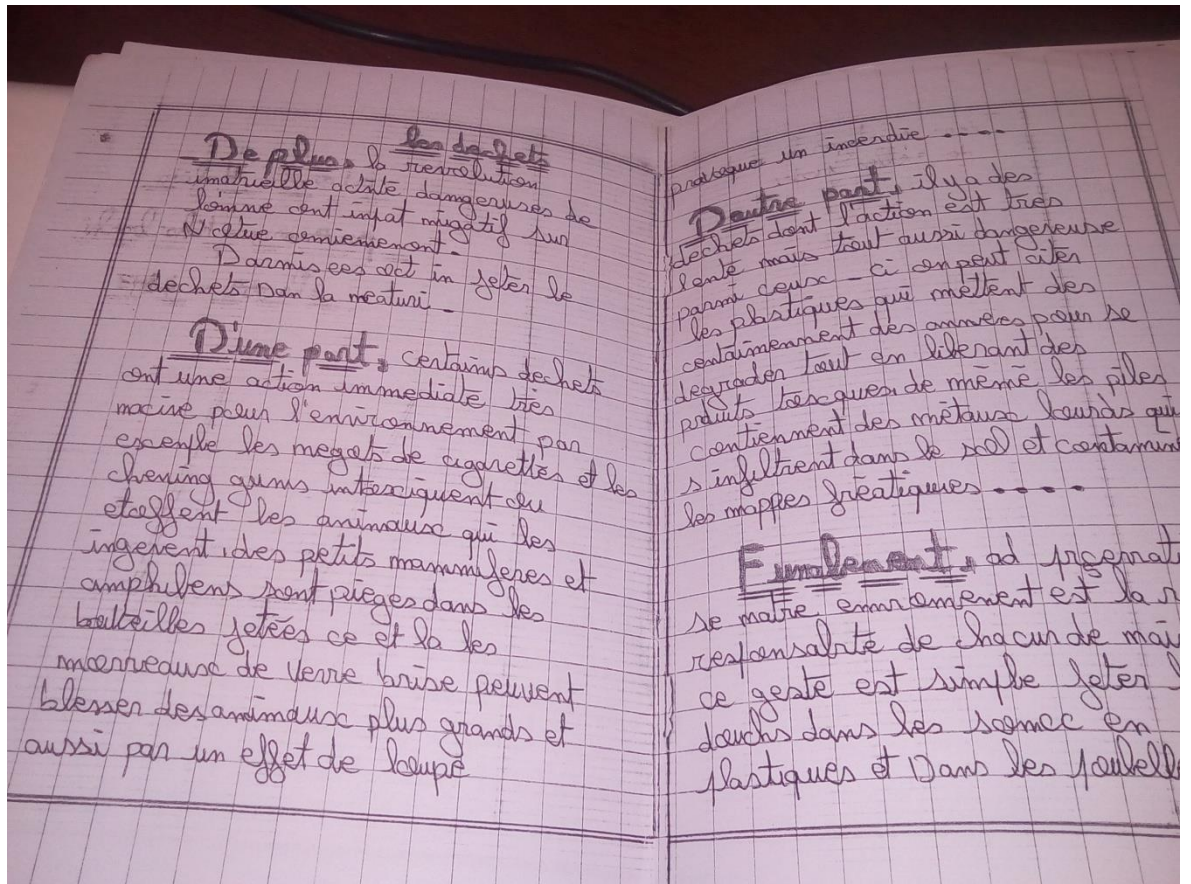 les dechets
De plus, la revolution
imatrielle actite dangeruses de
lomme ont infat migatif sur
Notue
Parmis ces act in jeter le
dechets Dan la meaturi
D'une part, certains dechets
ont une action immediate très
nocive pour l'environnement par
exemple les megots de cigarettes et les
chewing gums intoxiquent ou
etouffent les animaux qui les
ingerent, des petits mammiferes et
amphibens sont pieges dans les
bouteilles jetées ce et la les
morreaux de Verre brise peuvent
blesser des animaux plus grands et
aussi par un effet de loupe
provoque un incendie ....
Dautre part, il y a des
dechets dont l'action est tres
lente mais tout aussi dangereuse
parmi ceux-ci on peut citer
les plastiques qui mettent des
centaimennent des annees pour se
degrader tout en liberant des
produits toxcques de même les piles
contiennent des mètaux lourds qui
s'infiltrent dans le sol et contamin
les nappes frèatiques ....
Finalement, ad
se notre enviromenent est la r
responsabrite de chacun de
ce geste est simple Jeter
douchs dans les en
plastiques et Dans les poubell